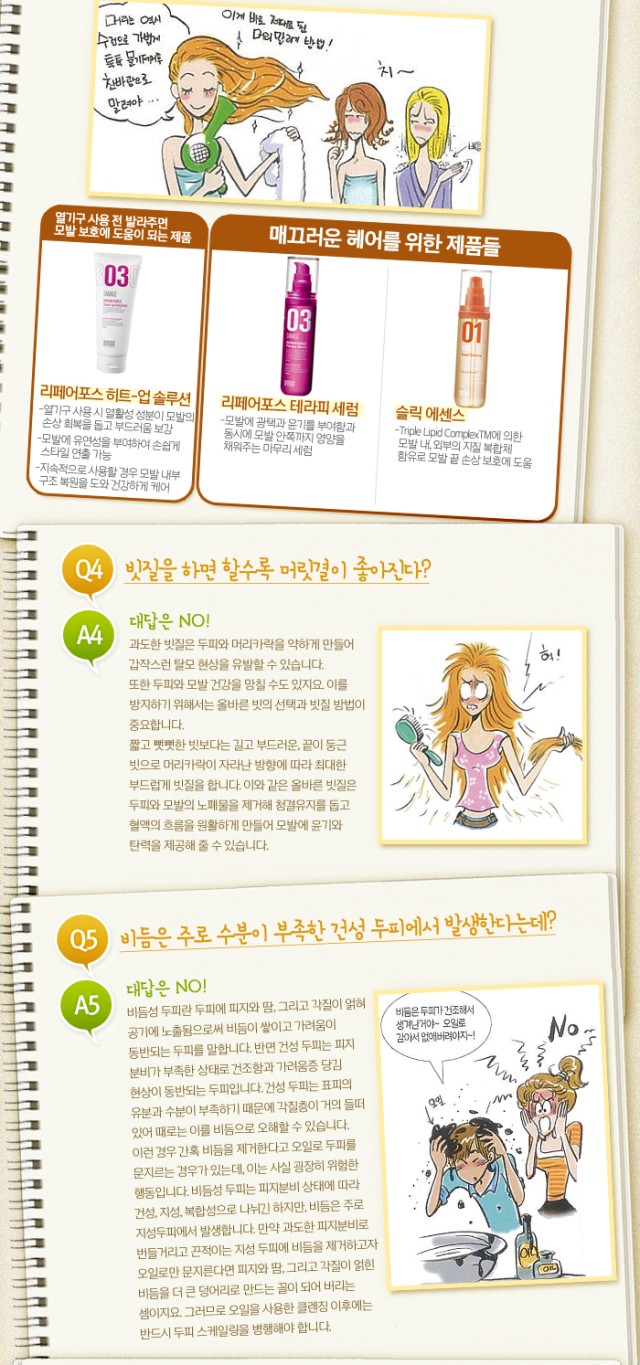 머리는 역시
수건으로 가볍게
톡톡 물기제거후
찬바람으로
말려야...
이게 바로 제대로 된
머리 말리기 방법!
치~
열기구 사용 전 발라주면
모발 보호에 도움이 되는 제품
매끄러운 헤어를 위한 제품들
03
DAMAGE
리페어포스 히트-업 솔루션
-열기구 사용 시 열활성 성분이 모발의
손상 회복을 돕고 부드러움 보강
-모발에 유연성을 부여하여 손쉽게
스타일 연출 가능
-지속적으로 사용할 경우 모발 내부
구조 복원을 도와 건강하게 케어
03
DAMAGE
리페어포스 테라피 세럼
-모발에 광택과 윤기를 부여함과
동시에 모발 안쪽까지 영양을
채워주는 마무리 세럼
01
슬릭 에센스
-Triple Lipid ComplexTM에 의한
모발 내,외부의 지질 복합체
함유로 모발 끝 손상 보호에 도움
Q4 빗질을 하면 할수록 머릿결이 좋아진다?
A4 대답은 NO!
과도한 빗질은 두피와 머리카락을 약하게 만들어
갑작스런 탈모 현상을 유발할 수 있습니다.
또한 두피와 모발 건강을 망칠 수도 있지요. 이를
방지하기 위해서는 올바른 빗의 선택과 빗질 방법이
중요합니다.
짧고 뻣뻣한 빗보다는 길고 부드러운, 끝이 둥근
빗으로 머리카락이 자라난 방향에 따라 최대한
부드럽게 빗질을 합니다. 이와 같은 올바른 빗질은
두피와 모발의 노폐물을 제거해 청결유지를 돕고
혈액의 흐름을 원활하게 만들어 모발에 윤기와
탄력을 제공해 줄 수 있습니다.
헉!
Q5 비듬은 주로 수분이 부족한 건성 두피에서 발생한다는데?
A5 대답은 NO!
비듬성 두피란 두피에 피지와 땀, 그리고 각질이 얽혀
공기에 노출됨으로써 비듬이 쌓이고 가려움이
동반되는 두피를 말합니다. 반면 건성 두피는 피지
분비가 부족한 상태로 건조함과 가려움증 당김
현상이 동반되는 두피입니다. 건성 두피는 표피의
유분과 수분이 부족하기 때문에 각질층이 거의 들떠
있어 때로는 이를 비듬으로 오해할 수 있습니다.
이런 경우 간혹 비듬을 제거한다고 오일로 두피를
문지르는 경우가 있는데, 이는 사실 굉장히 위험한
행동입니다. 비듬성 두피는 피지분비 상태에 따라
건성, 지성, 복합성으로 나뉘긴 하지만, 비듬은 주로
지성두피에서 발생합니다. 만약 과도한 피지분비로
번들거리고 끈적이는 지성 두피에 비듬을 제거하고자
오일로만 문지른다면 피지와 땀, 그리고 각질이 얽힌
비듬을 더 큰 덩어리로 만드는 꼴이 되어 버리는
셈이지요. 그러므로 오일을 사용한 클렌징 이후에는
반드시 두피 스케일링을 병행해야 합니다.
비듬은 두피가 건조해서
생겨난거야~ 오일로
감아서 없애버려야지~!
No~
오일
OIL
OIL